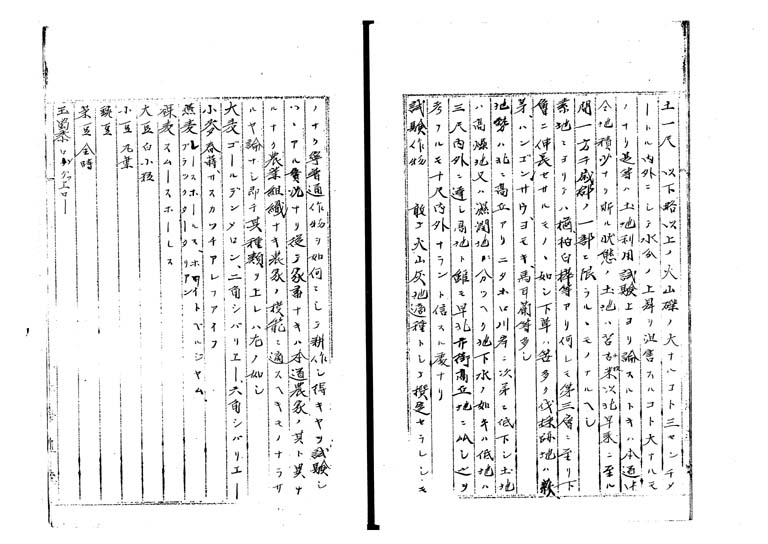 土一尺 以下略以上ノ火山礫ノ大ナルコト三センチメ
ートル内外ニシテ水分ノ上昇ヲ沮害スルコト大ナルモ
ノナリ是等ハ土地利用試験上ヨリ論スルトキハ本道
全地積少ナク斯ル状態ノ土地ハ苫小牧 早来ニ至ル
間一方千歳郡ノ一部ニ限ラルヽモノナルヘシ
素地ニヨリテハ楢柏白樺等アリ何レモ第三層ニ至リ下
層ニ伸長セサルモノヽ如シ下草ハ笹多ク伐採跡地ハ萩
茅ハンゴンサウヨモキ馬 等多シ
地勢ハ北ニ高丘アリニタホロ川岸ニ次第ニ低下シ土地
ハ高燥地又ハ湿潤地ガ分ツヘク地下水ノ如キハ低地ハ
三尺内外ニ達シ居地ト雖モ早北市街高丘地ニ比シ之ヲ
考フルモ十尺内外ナラント信スル處ナリ
試験作物 敢テ火山灰地適種トシテ撰定セラレシモ
ノナク寧普通作物ヲ如何ニシテ耕作シ得キヤヲ試験シ
ツヽアル實況ナリ従テ家畜ナキハ本道農家ノ其ト異ナ
ルナク農業組織ナキ農家ノ模範ニ適スヘキモノナラサ
ルヤ論ナシ即チ其種類ヲ上レハ左ノ如シ
大麦 ゴールデンメロン、二角シバリエー、六角シバリエー
小麥 春蒔 ガスカツチアレフアイフ
燕麦 ブラツクターターリアン
裸麦 スムースホーレス
大豆 白小粒
小豆 丸葉
豌豆
菜豆 金時
玉蜀黍 ロングエロー